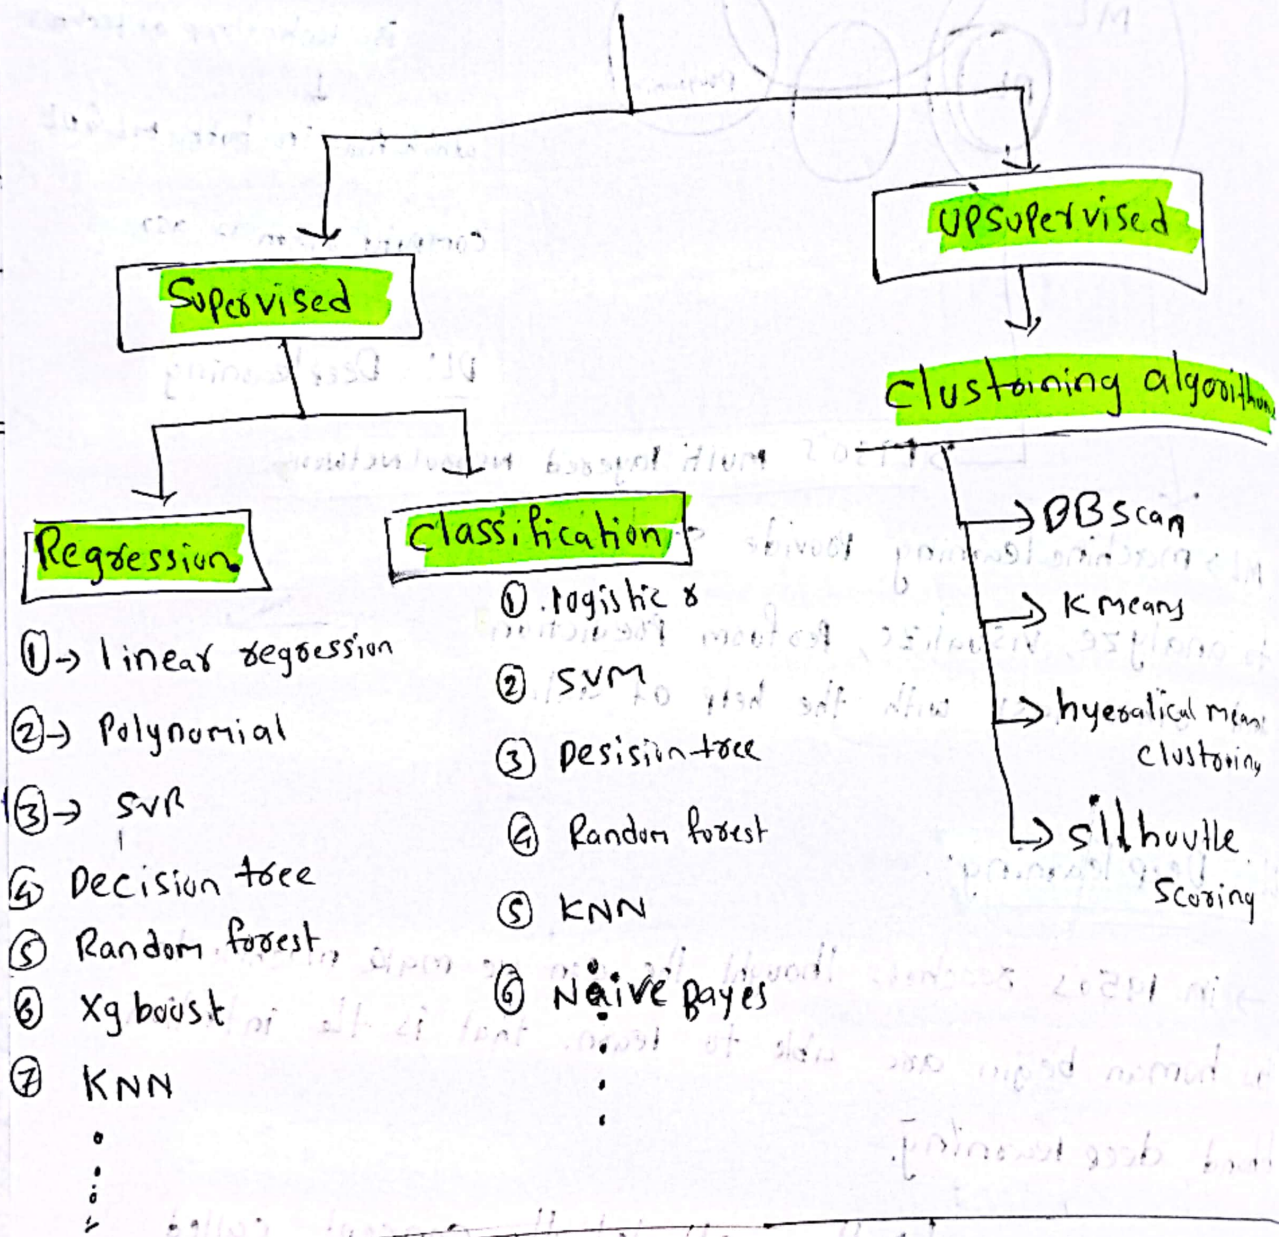 Supervised
UPSupervised
Clustoining algorithms
Regression
Classification
① → linear regression
② → Polynomial
③ → SVR
④ Decision tree
⑤ Random forest
⑥ Xgboost
⑦ KNN
① logistic r
② SVM
③ Desisiin tree
④ Random forest
⑤ KNN
⑥ Naive Bayes
→ DB scan
→ K means
→ hyeratical mean
clustoring
→ silhoutle
Scoring